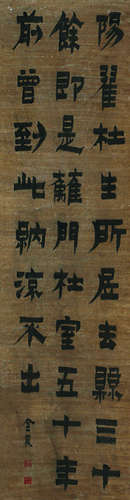 陽翟杜生所居去縣三十
餘即是蘺門杜室五十年
前曾到此納涼不出
金農